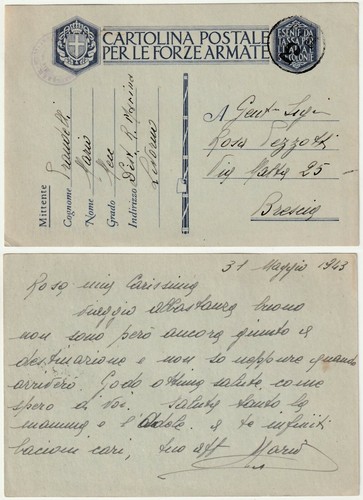 CARTOLINA POSTALE
PER LE FORZE ARMATE
ESENTE DA
TASSA PER
COLONIE
Mittente
Cognome
Nome Mario
Grado
Indirizzo
Livorno
A Gent. Sig.
Rosa Pezzotti
Via Malta 25
Brescia
31 Maggio 1943
Rosa mia Carissima
Viaggio abbastanza buono
non sono però ancora giunto a
destinazione e non so neppure quando
arriverò. Godo ottima salute come
spero di Voi. Saluta tanto la
mamma e l'Adele a te infiniti
bacioni cari, tuo aff Mario